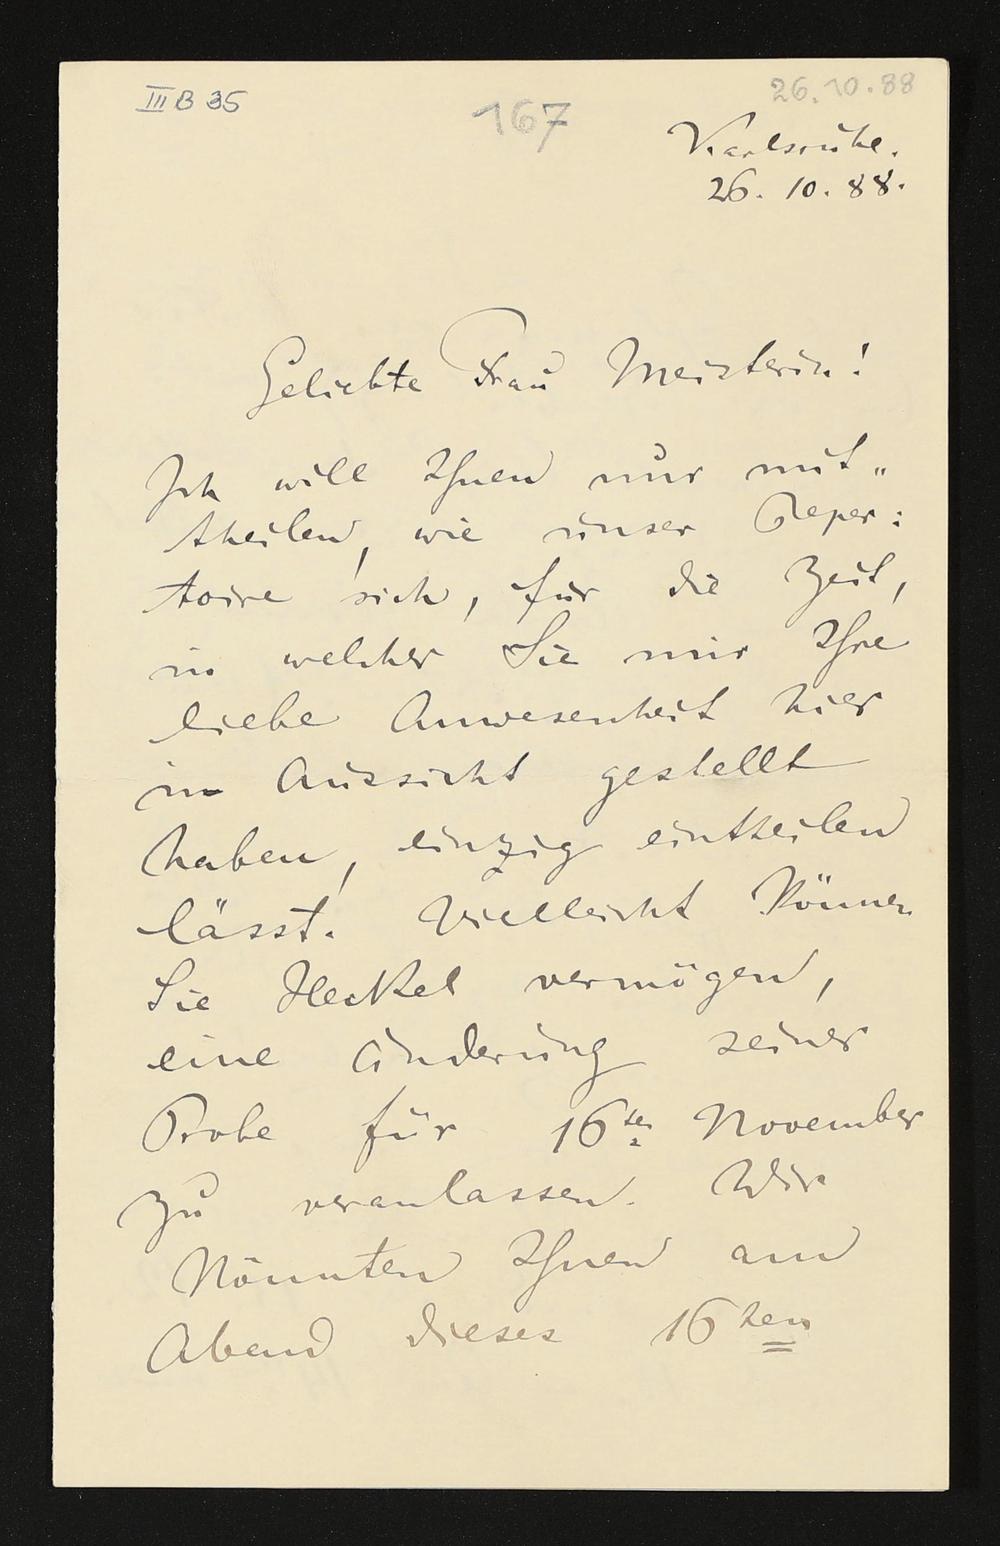 III B 35
167
26.10.88
Karlsruhe.
26. 10. 88.
Geliebte Frau Meisterin!
Ich will Ihnen nur mit„
theilen, wie unser Reper:
toire sich, für die Zeit,
in welcher Sie mir Ihre
liebe Anwesenheit hier
in Aussicht gestellt
haben, einzig eintheilen
lässt. Vielleicht können
Sie Heckel vermögen,
eine Änderung seiner
Probe für 16ten November
zu veranlassen. Wir
könnten Ihnen am
Abend dieses 16ten